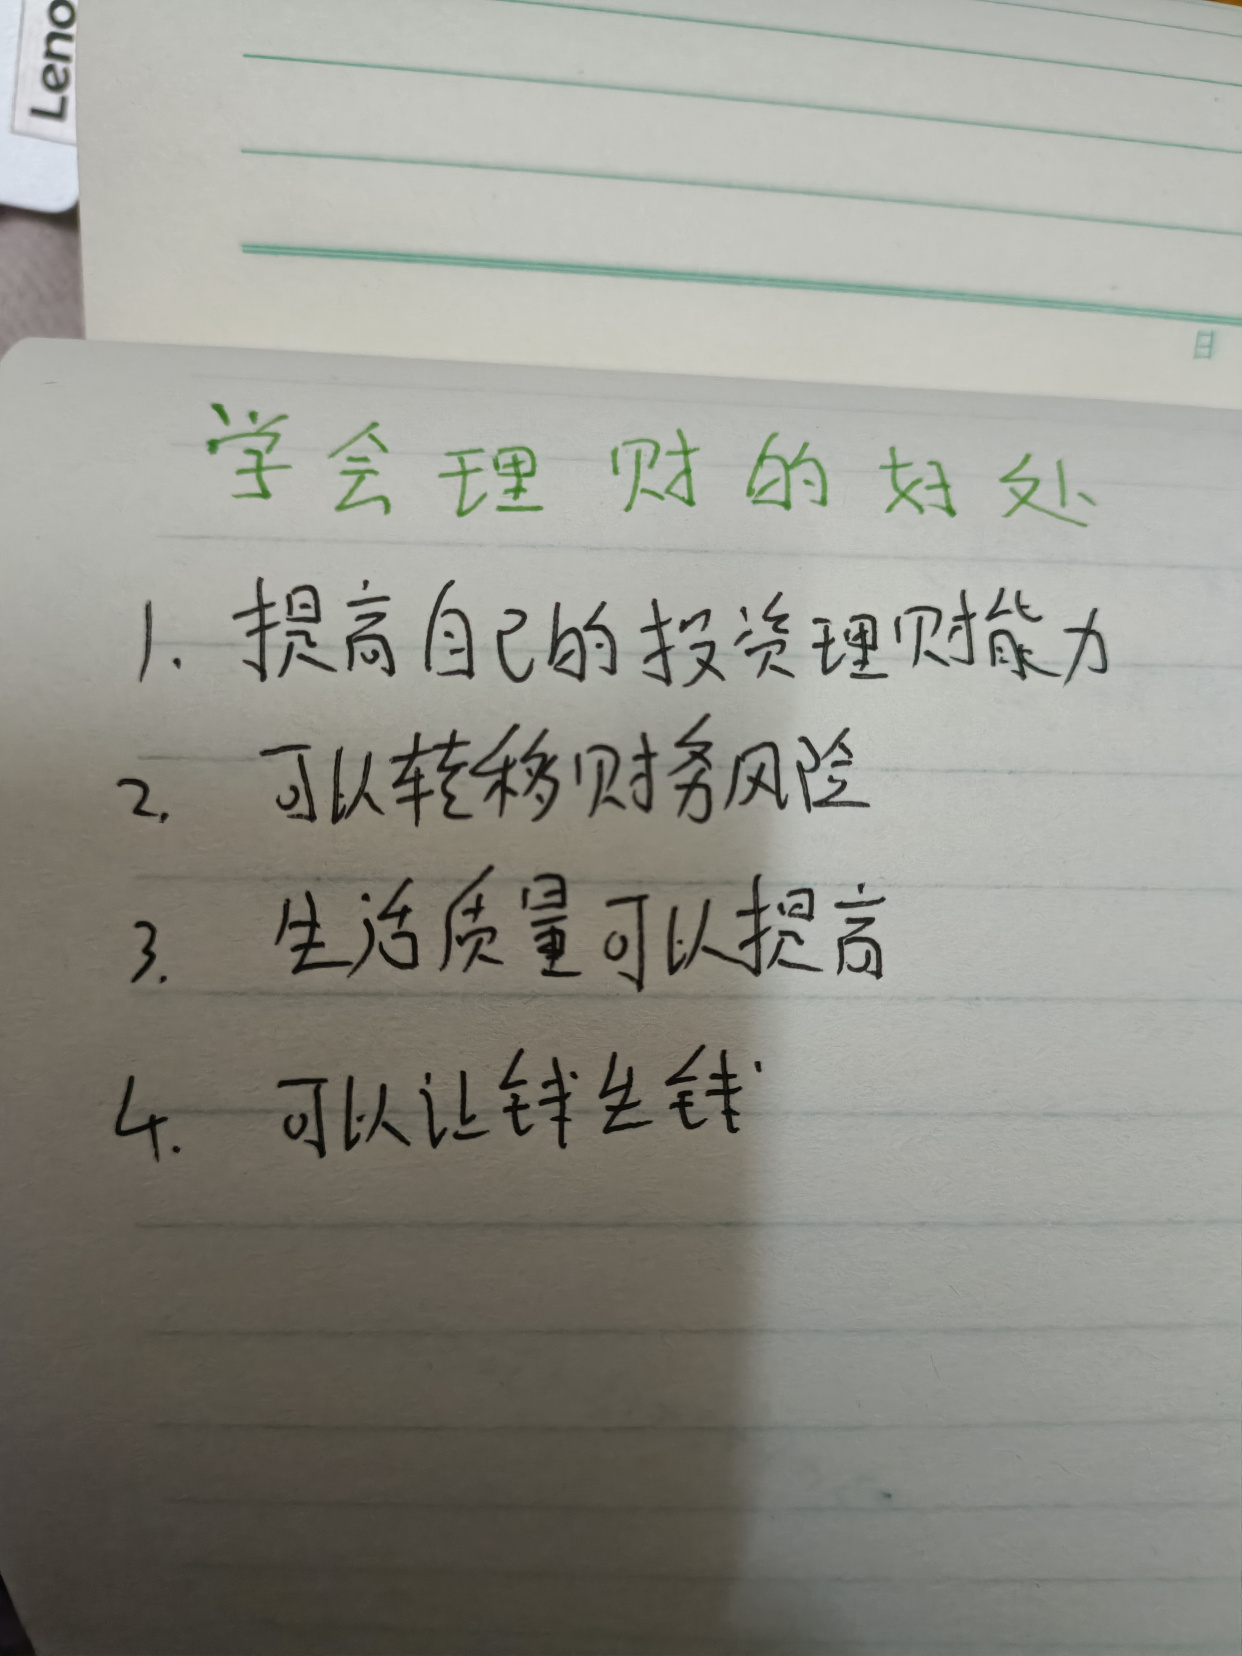 Leno
学会理财的好处
1. 提高自己的投资理财能力
2. 可以转移财务风险
3. 生活质量可以提高
4. 可以让钱生钱